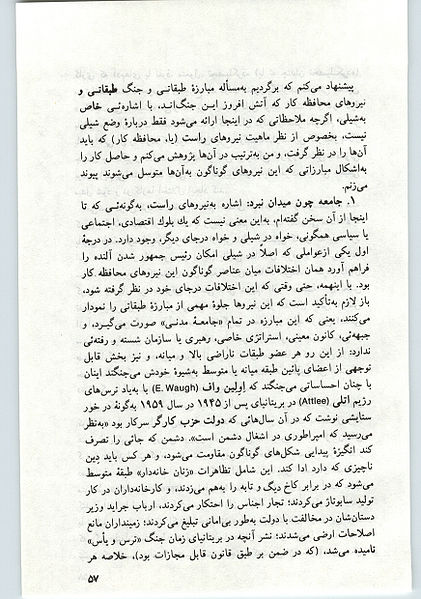 پیشنهاد می‌کنم که برگردیم به‌مسأله مبارزهٔ طبقاتی و جنگ طبقاتی و
نیروهای محافظه کار که آتش افروز این جنگ‌اند، با اشاره‌ئی خاص
به‌شیلی، اگرچه ملاحظاتی که در اینجا ارائه می‌شود فقط دربارهٔ وضع شیلی
نیست، بخصوص از نظر ماهیت نیروهای راست (یا، محافظه کار) که باید
آن‌ها را در نظر گرفت، و من به‌ترتیب در آن‌ها پژوهش می‌کنم و حاصل کار را
به‌اشکال مبارزاتی که این نیروهای گوناگون به‌آن‌ها متوسل می‌شوند پیوند
می‌زنم.
۱. جامعه چون میدان نبرد: اشاره به‌نیروهای راست، به‌گونه‌ئی که تا
اینجا از آن سخن گفته‌ام، به‌این معنی نیست که یك بلوك اقتصادی، اجتماعی
یا سیاسی همگونی، خواه در شیلی و خواه درجای دیگر، وجود دارد. در درجهٔ
اول یکی ازعواملی که اصلاً در شیلی امکان رئیس جمهور شدن آلنده را
فراهم آورد همان اختلافات میان عناصر گوناگون این نیروهای محافظه کار
بود. با اینهمه، حتی وقتی که این اختلافات درجای خود در نظر گرفته شود،
باز لازم به‌تأکید است که این نیروها جلوهٔ مهمی از مبارزهٔ طبقاتی را نمودار
می‌کنند، یعنی که این مبارزه در تمام «جامعهٔ مدنی» صورت می‌گیرد، و
جبهه‌ئی، کانون معینی، استراتژی خاصی، رهبری یا سازمان شسته و رفته‌ئی
ندارد: از این رو هر عضو طبقات ناراضی بالا و میانه، و نیز بخش قابل
توجهی از اعضای پائین طبقه میانه یا متوسط به‌شیوهٔ خودش می‌جنگد اینان
با چنان احساساتی می‌جنگند که اِولین واف (E. Waugh) با به‌یاد ترس‌های
رژیم اتلی (Attlee) در بریتانیای پس از ۱۹۴۵ در سال ۱۹۵۹ به‌گونهٔ در خور
ستایشی نوشت که در آن سال‌هائی که دولت حزب کارگر سرکار بود «به‌نظر
می‌رسید که امپراطوری در اشغال دشمن است». دشمن که جائی را تصرف
کند انگیزهٔ پیدایی شکل‌های گوناگون مقاومت می‌شود، و هر کس باید دِین
ناچیزی که دارد ادا کند. این شامل تظاهرات «زنان خانه‌دار» طبقهٔ متوسط
می‌شود که در برابر کاخ دیگ و تابه را به‌هم می‌زدند، و کارخانه‌داران در کار
تولید سابوتاژ می‌کردند؛ تجار اجناس را احتکار می‌کردند، ارباب جراید وزیر
دستان‌شان در مخالفت با دولت به‌طور بی‌امانی تبلیغ می‌کردند؛ زمینداران مانع
اصلاحات ارضی می‌شدند؛ نشر آنچه در بریتانیای زمان جنگ «ترس و یأس»
نامیده می‌شد، (که در ضمن بر طبق قانون قابل مجازات بود)، خلاصه هر
۵۷